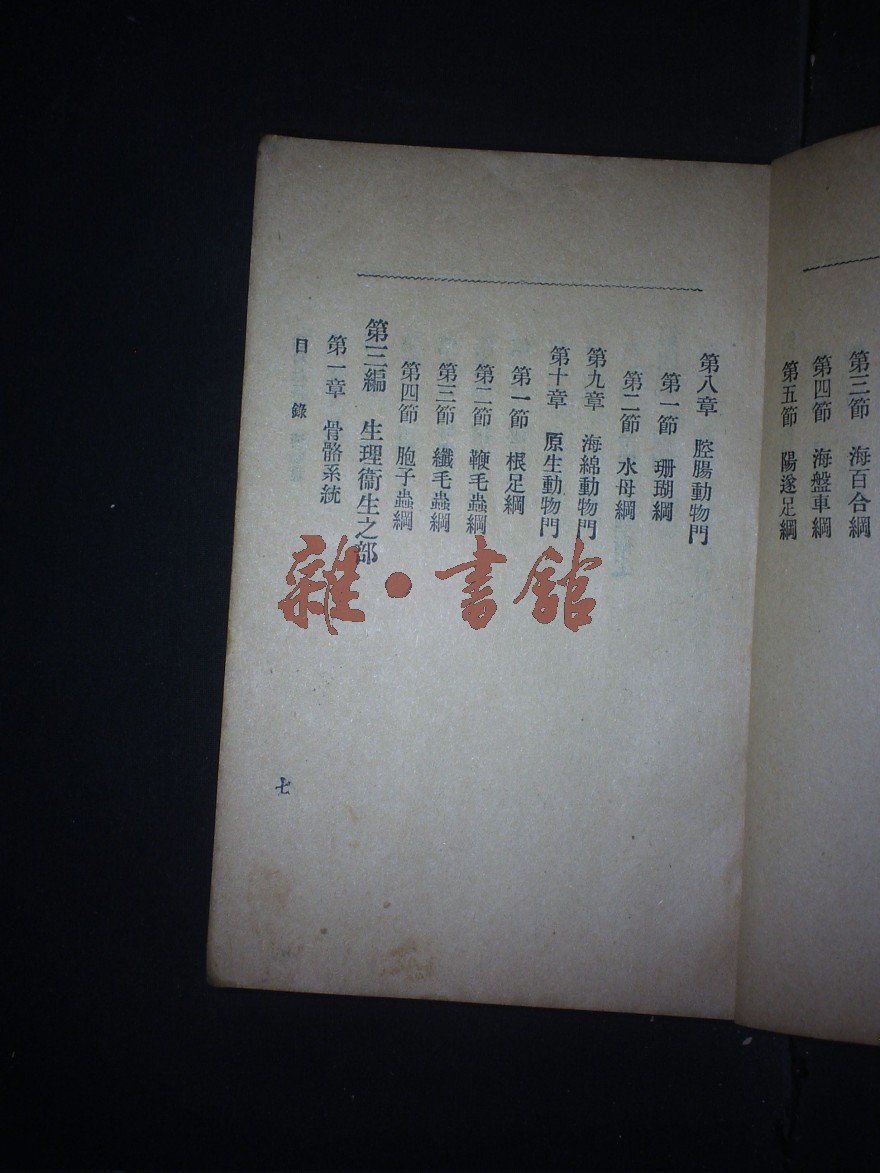 第三節 海百合綱
第四節 海盤車綱
第五節 陽遂足綱
第八章 腔腸動物門
第一節 珊瑚綱
第二節 水母綱
第九章 海綿動物門
第十章 原生動物門
第一節 根足綱
第二節 鞭毛蟲綱
第三節 纖毛蟲綱
第四節 胞子蟲綱
第三編 生理衞生之部
第一章 骨骼系統
目錄
七
雜·書館